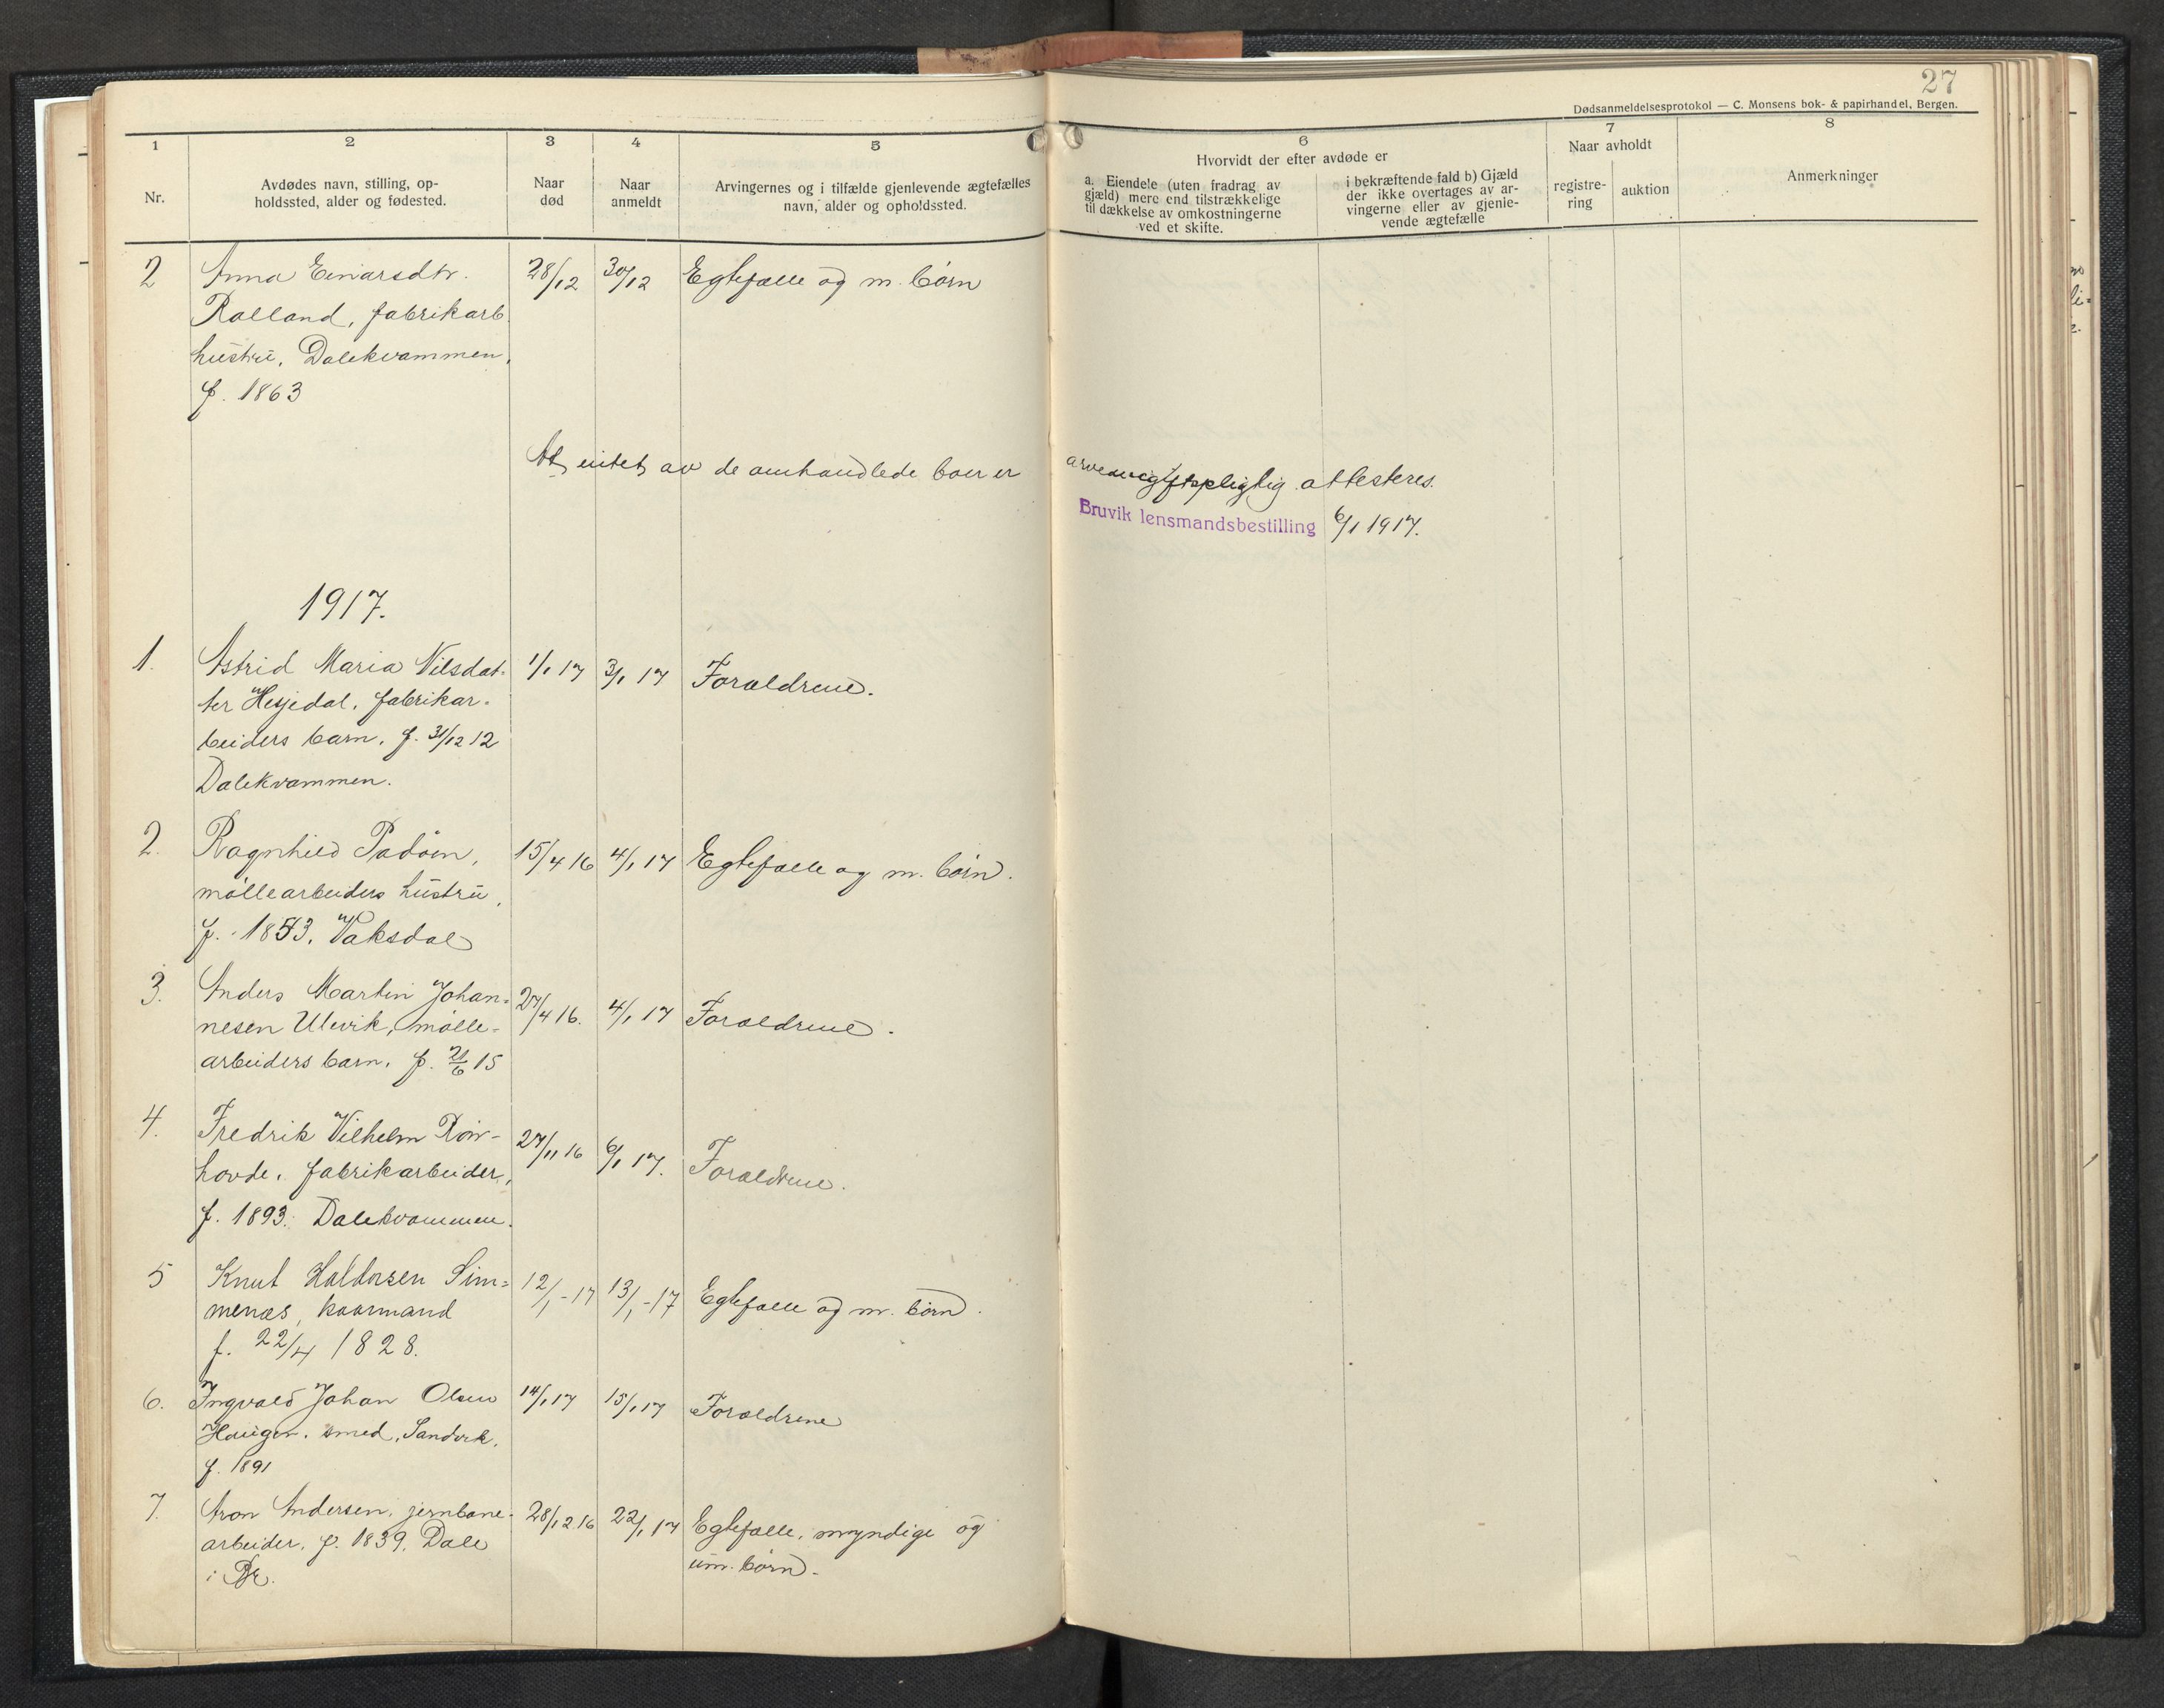 27
Dødsanmeldelsesprotokol — C. Monsens bok- & papirhandel, Bergen.
1
Nr.
2
Avdødes navn, stilling, op-
holdssted, alder og fødested.
3
Naar
død
4
Naar
anmeldt
5
Arvingernes og i tilfælde gjenlevende ægtefælles
navn, alder og opholdssted.
6
Hvorvidt der efter avdøde er
a. Eiendele (uten fradrag av
gjæld) mere end tilstrækkelige
til dækkelse av omkostningerne
ved et skifte.
i bekræftende fald b) Gjæld
der ikke overtages av ar-
vingerne eller av gjenle-
vende ægtefælle
7
Naar avholdt
registre-
ring
auktion
8
Anmerkninger
2 Anna Einarsdtr. 28/12 30/12 Egtefælle og m. børn
Ralland, fabrikarb.
hustru, Dalekvammen,
f. 1863
At intet av de omhandlede boer er arveavgiftspligtig attesteres.
Bruvik lensmandsbestilling 6/1 1917.
1917.
1. Astrid Maria Nilsdat- 1/1 17 3/1 17 Forældrene.
ter Hesjedal, fabrikar-
beiders barn, f. 31/12 12
Dalekvammen.
2. Ragnhild Padøen, 15/4 16 4/1 17 Egtefælle og m. børn.
møllearbeiders hustru,
f. 1853, Vaksdal
3. Anders Martin Johan- 27/4 16. 4/1 17 Forældrene.
nesen Ulevik, mølle-
arbeiders barn, f. 21/6 15
4. Fredrik Vilhelm 27/11 16 6/1 17. Forældrene.
hovde, fabrikarbeider,
f. 1893. Dalekvammen.
5 Knut Haldorsen Sim- 12/1-17 13/1-17 Egtefælle og m. børn.
menæs, kaarmand
f. 22/4 1828.
6. Ingvald Johan Olsen 14/1 17 15/1 17 Forældrene
Haugen, smed, Sandvik,
f. 1891
7. Aron Andersen, jernbane- 28/12 16 22/1 17 Egtefælle, myndige og
arbeider, f. 1839, Dale um. børn.
i Br.